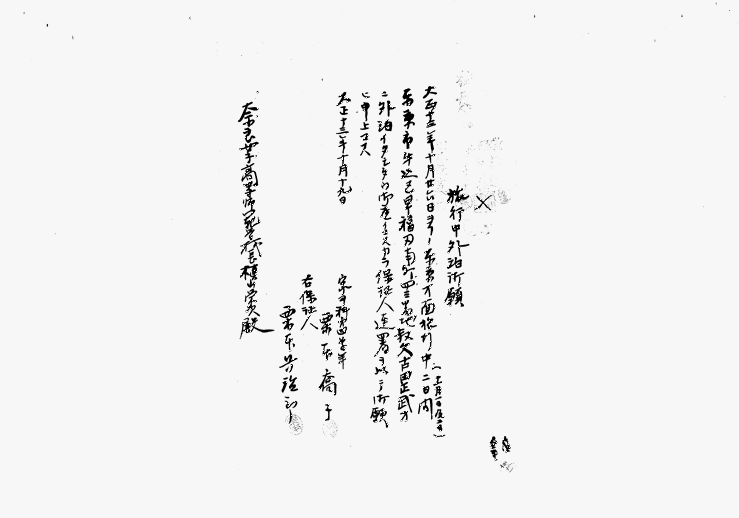 旅行中外泊御願
大正十三年十月廿六日ヨリ東京方面旅行中二日間(十一月一日及二日)
東京市牛込区早稲田南町四三番地叔父古田正武方
ニ外泊イタシタク御座候ニツキ保証人連署ヲ以テ御願
ヒ申上マス
大正十三年十月十九日
家事科第四学年
栗本喬子
右保証人
栗本
奈良女子高等師範学校長槇山栄次殿